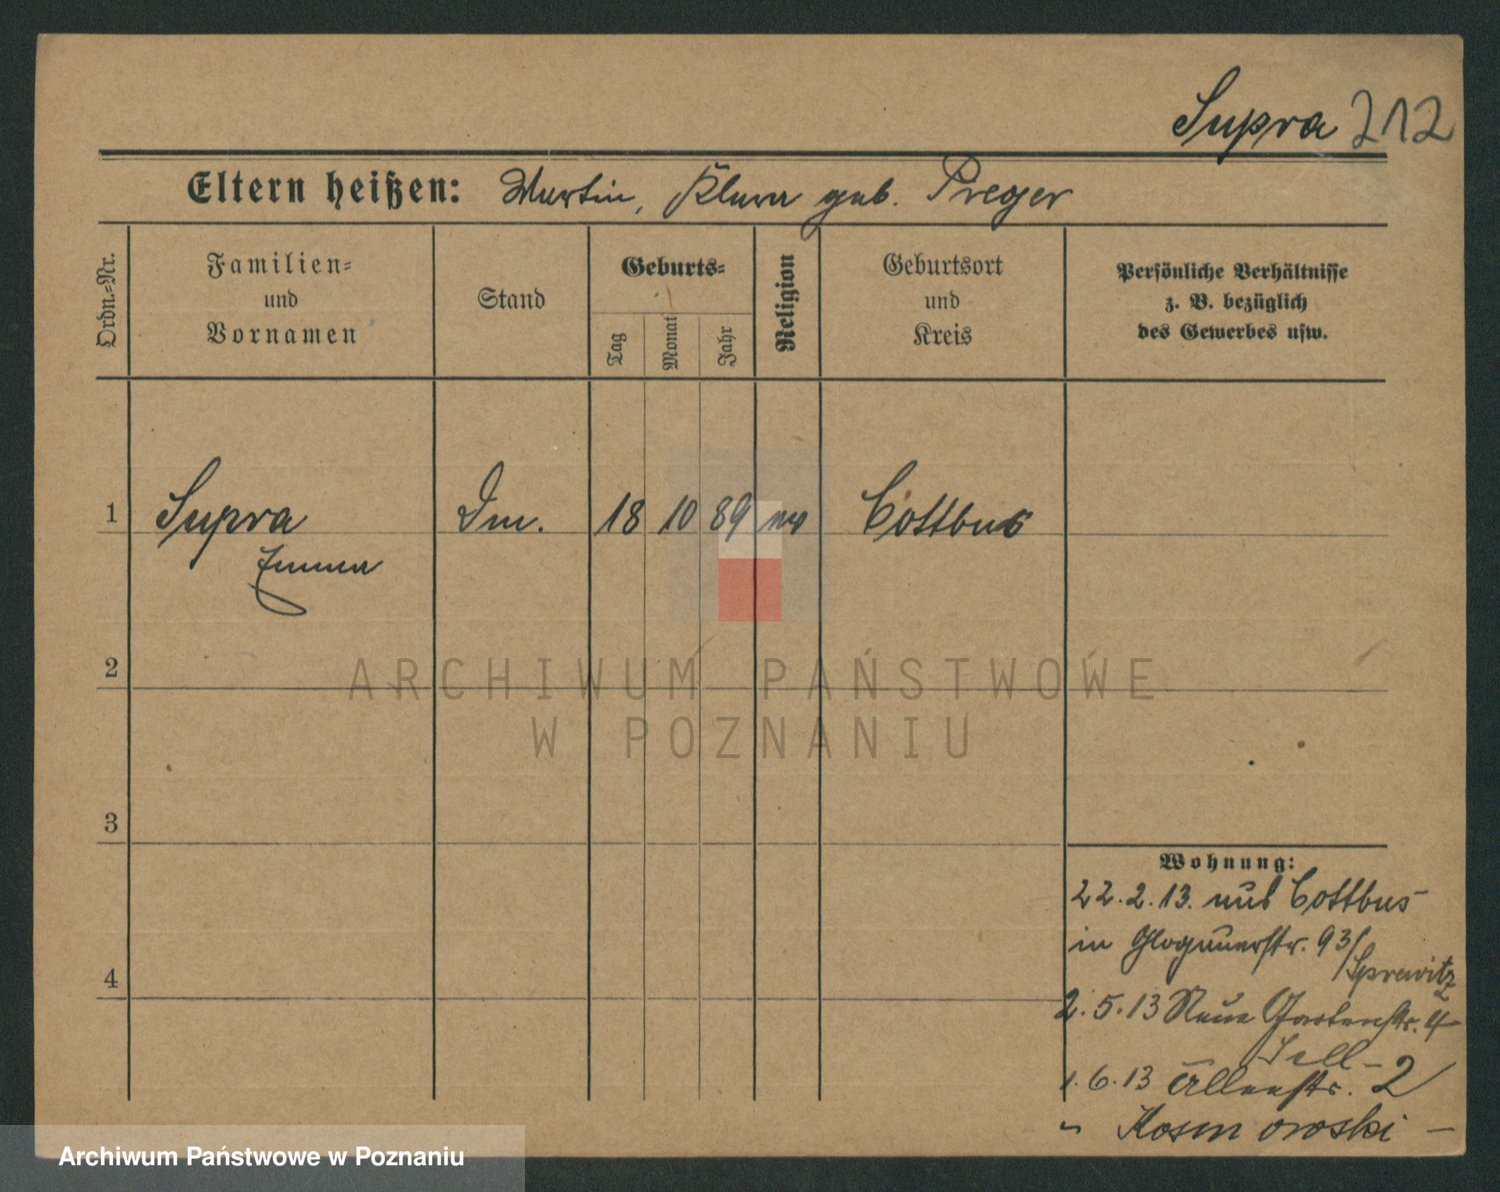 Supra 212
Eltern heißen: Martin, Klara geb. Preger
Ordn.=Nr.
Familien=
und
Vornamen
Stand
Geburts=
Tag
Monat
Jahr
Religion
Geburtsort
und
Kreis
Persönliche Verhältnisse
z. B. bezüglich
des Gewerbes usw.
1 Supra 18 10 89 Cottbus
Emma
2
3
4
Wohnung:
22.2.13. aus Cottbus
in Glogauerstr. 93/
2.5.13 Neue Gartenstr. 4
Sell
1.6.13 2
ARCHIWUM PAŃSTWOWE
W POZNANIU
Archiwum Państwowe w Poznaniu